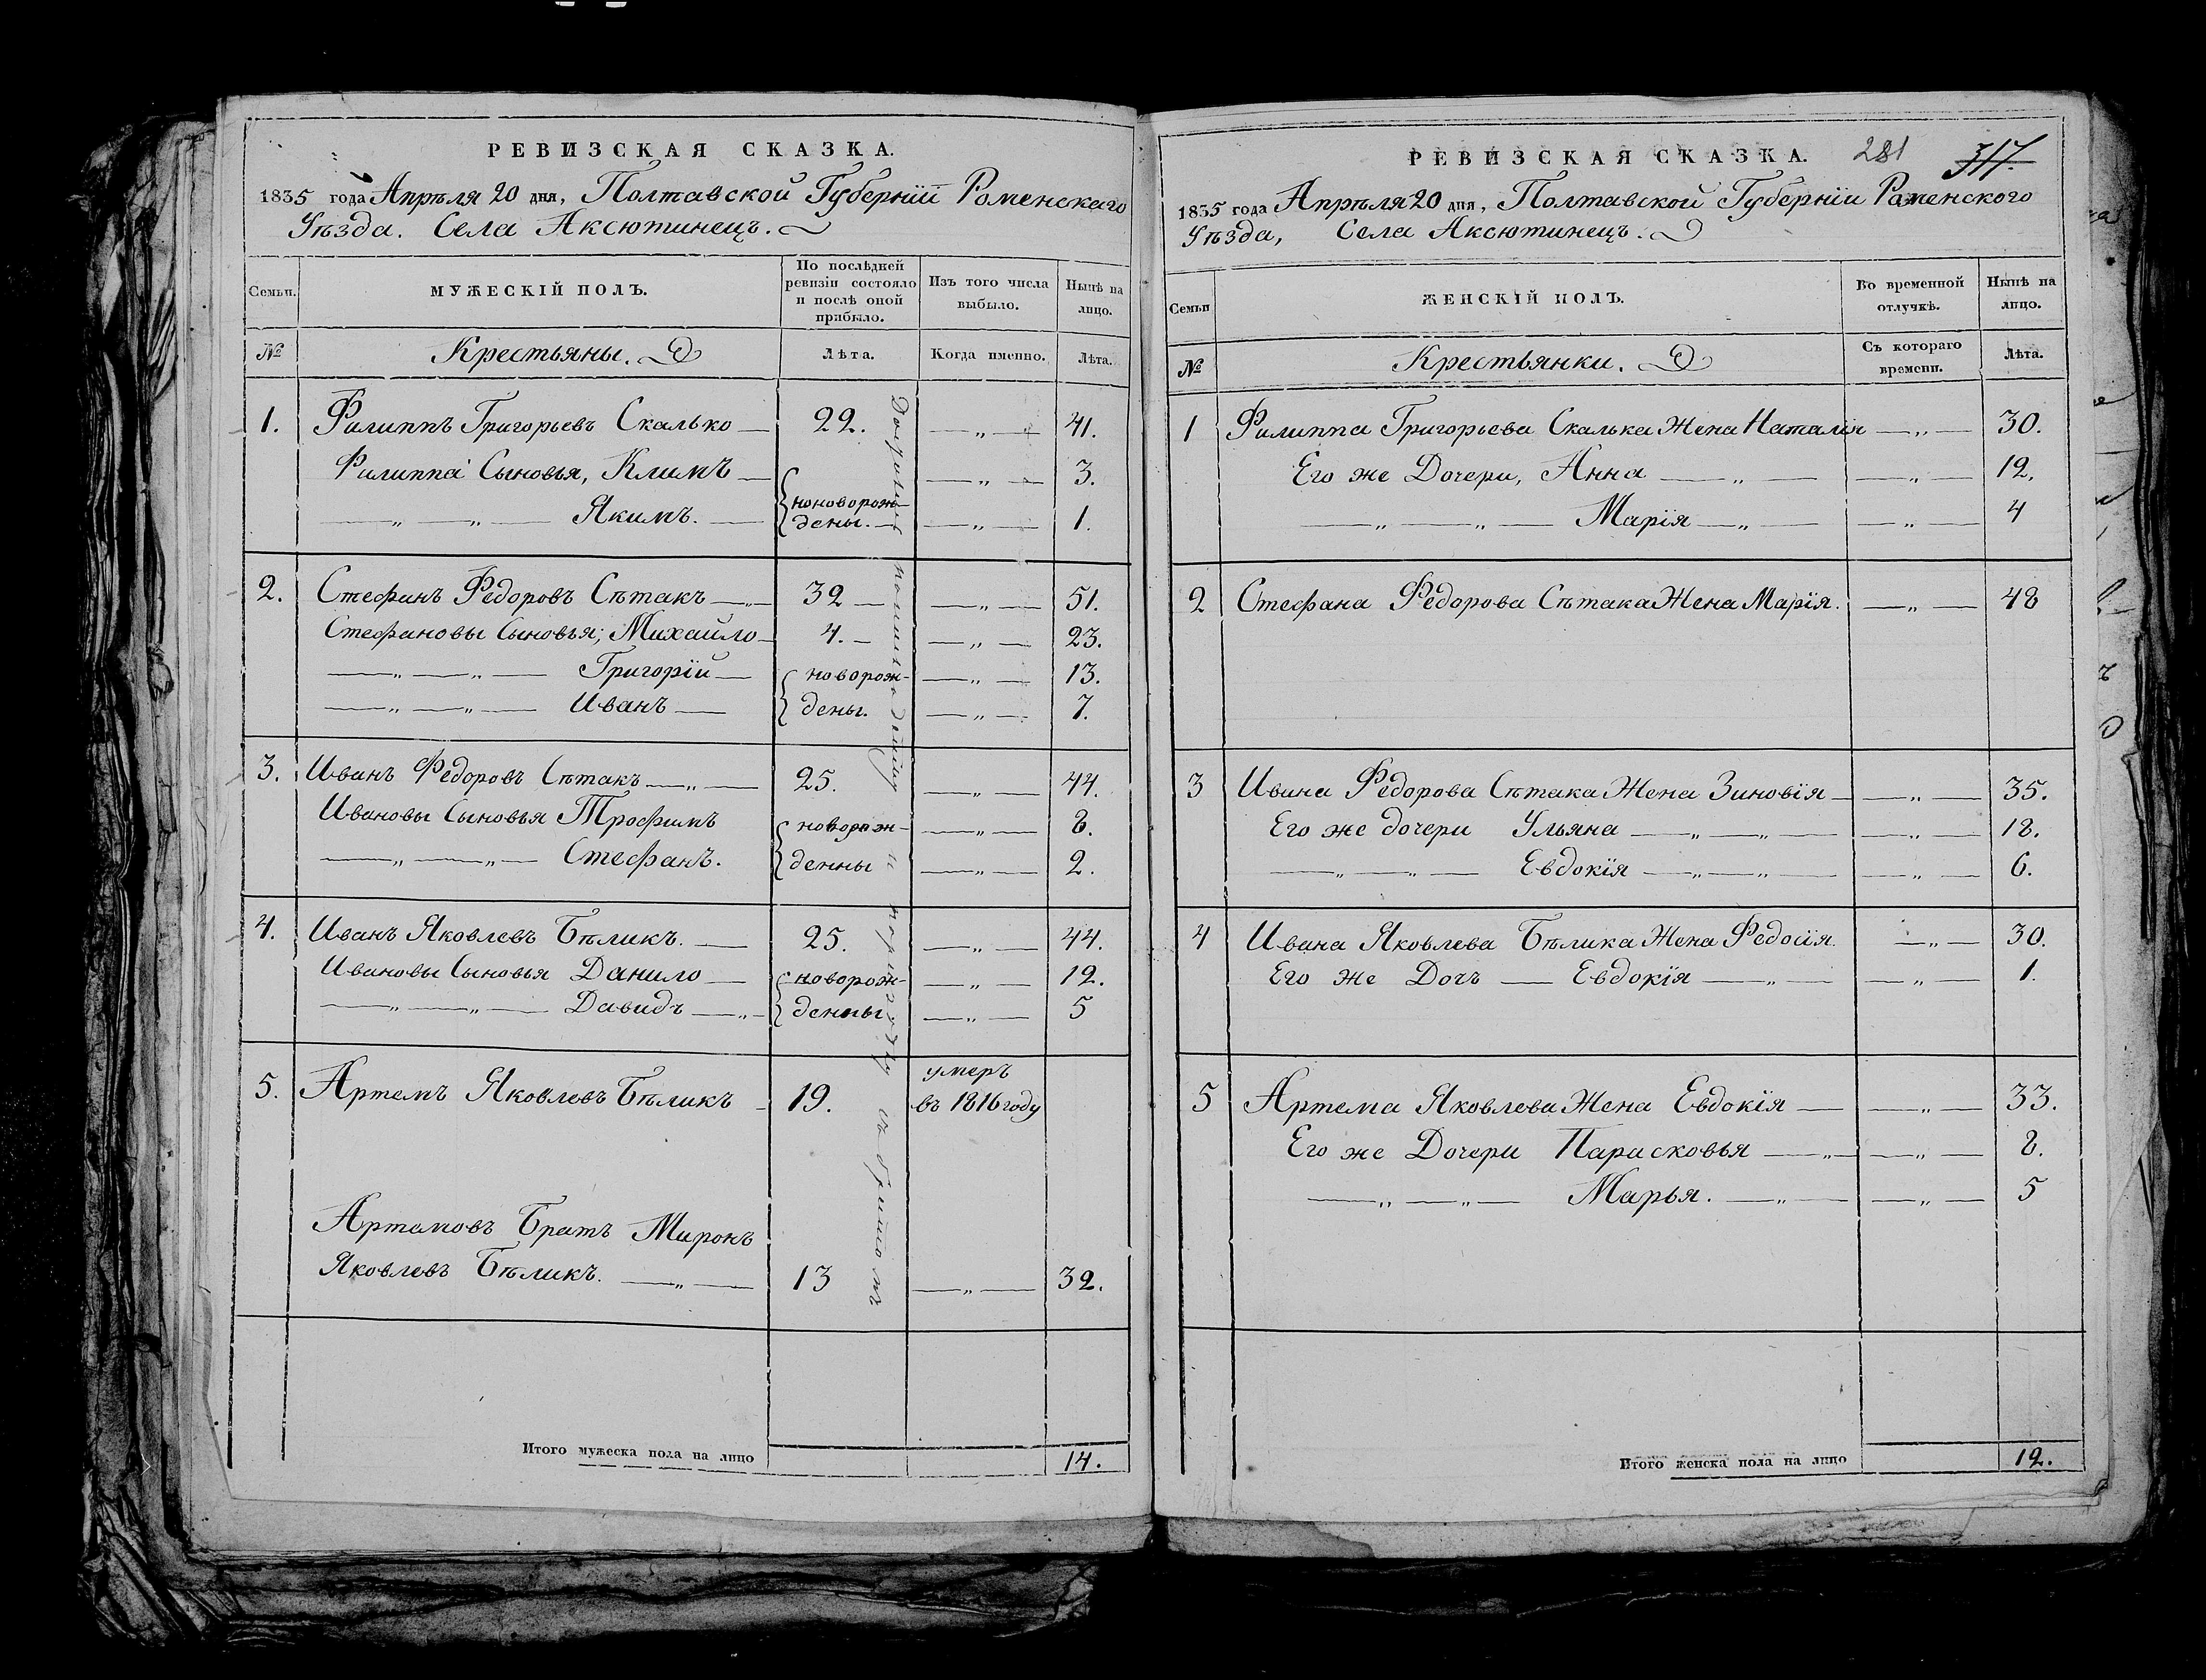 РЕВИЗСКАЯ СКАЗКА.
1835 года Апрѣля 20 дня, Полтавской Губерніи Роменскаго
Уѣзда. Села Аксютинецъ.
Семьи.
МУЖЕСКІЙ ПОЛЪ.
По послѣдней ревизіи состояло и послѣ оной прибыло.
Изъ того числа выбыло.
Нынѣ на лицо.
№
Крестьяны.
Лѣта.
Когда именно.
Лѣта.
1. Филиппъ Григорьевъ Скалько — 22. — „ — 41.
Филиппа Сыновья, Климъ — — „ — 3.
— „ — „ — Якимъ. — — „ — 1.
новорож-
дены. —
2. Стефанъ Федоровъ Сѣтакъ — „ — 32 — — „ — 51.
Стефановы Сыновья; Михайло — 4. — — „ — 23.
— „ — „ — Григорій — новорож- — „ — 13.
— „ — „ — Иванъ — дены. — „ — 7.
3. Иванъ Федоровъ Сѣтакъ — „ — 25. — „ — 44.
Ивановы Сыновья Трофимъ новорож- — „ — 8.
— „ — „ — Стефанъ. денны — „ — 2.
4. Иванъ Яковлевъ Бѣликъ. — 25. — „ — 44.
Ивановы Сыновья Данило — новорож- — „ — 12.
— „ — „ — Давидъ — „ — денны — „ — 5
5. Артемъ Яковлевъ Бѣликъ — 19. умеръ
въ 1816 году
Артемовъ Братъ Миронъ
Яковлевъ Бѣликъ. — „ — 13 — „ — 32.
Итого мужеска пола на лицо 14.
РЕВИЗСКАЯ СКАЗКА. 281 317.
1835 года Апрѣля 20 дня, Полтавской Губерніи Роменского
Уѣзда, Села Аксютинецъ.
Семьи
ЖЕНСКІЙ ПОЛЪ.
Во временной отлучкѣ.
Нынѣ на лицо.
№
Крестьянки.
Съ котораго времени.
Лѣта.
1 Филиппа Григорьева Скалька Жена Наталія — „ — 30.
Его же Дочери, Анна — „ — — „ — 12.
— „ — „ — Марія — „ — — „ — 4
2 Стефана Федорова Сѣтака Жена Марія. — „ — 48
3 Ивана Федорова Сѣтака Жена Зиновія — — „ — 35.
Его же дочери Ульяна — „ — „ — — „ — 18.
— „ — „ — Евдокія — „ — „ — — „ — 6.
4 Ивана Яковлева Бѣлика Жена Федосія. — „ — 30.
Его же Дочъ — Евдокія — „ — — „ — 1.
5 Артема Яковлева Жена Евдокія — — „ — 33.
Его же Дочери Парасковья — „ — — „ — 8.
— „ — „ — Марья. — „ — — „ — 5
Итого женска пола на лицо 12.